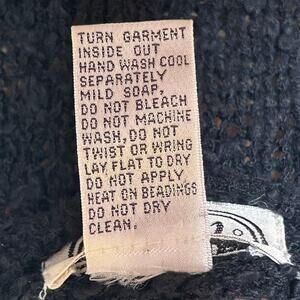 TURN GARMENT
INSIDE OUT
HAND WASH COOL
SEPARATELY
MILD SOAP,
DO NOT BLEACH
DO NOT MACHINE
WASH, DO NOT
TWIST OR WRING
LAY FLAT TO DRY
DO NOT APPLY
HEAT ON BEADINGS
DO NOT DRY
CLEAN.